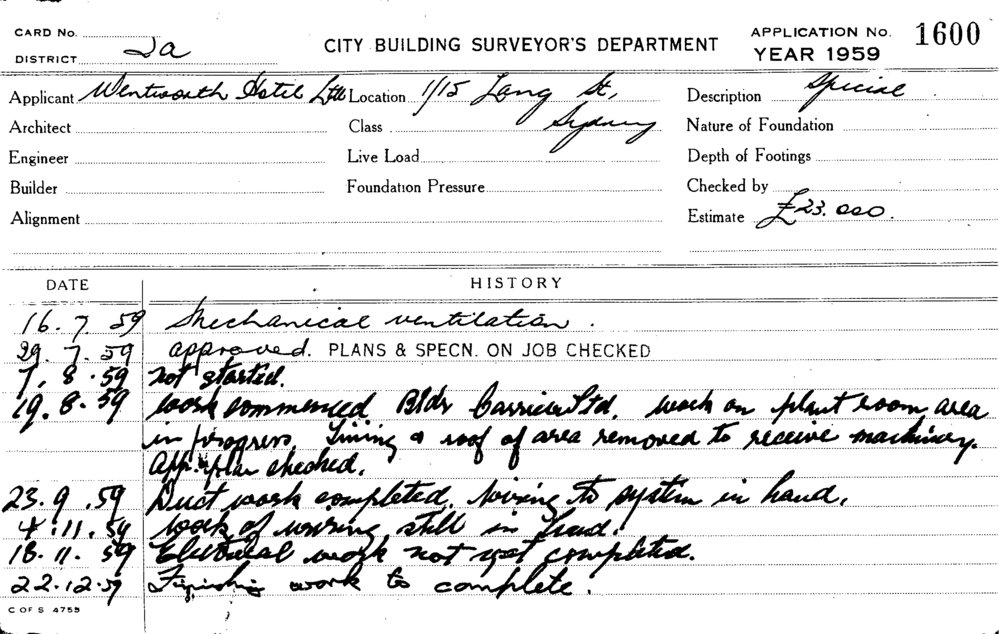 CARD No.
DISTRICT 2a
CITY BUILDING SURVEYOR'S DEPARTMENT
APPLICATION No. 1600
YEAR 1959
Applicant Wentworth Hotel Ltd Location 1/15 Lang St, Description Special
Architect Class Sydney Nature of Foundation
Engineer Live Load Depth of Footings
Builder Foundation Pressure Checked by
Alignment Estimate £23.000.
DATE HISTORY
16.7.59 Mechanical ventilation.
29.7.59 approved. PLANS & SPECN. ON JOB CHECKED
7.8.59 not started.
19.8.59 work commenced Bldr Carrier Ltd. work on plant room area
in progress. Lining & roof of area removed to receive machinery.
App. plan checked.
23.9.59 Duct work completed. wiring to system in hand.
4.11.59 work of wiring still in hand.
18.11.59 Electrical work not yet completed.
22.12.59 Finishing work to complete.
C OF S 4759